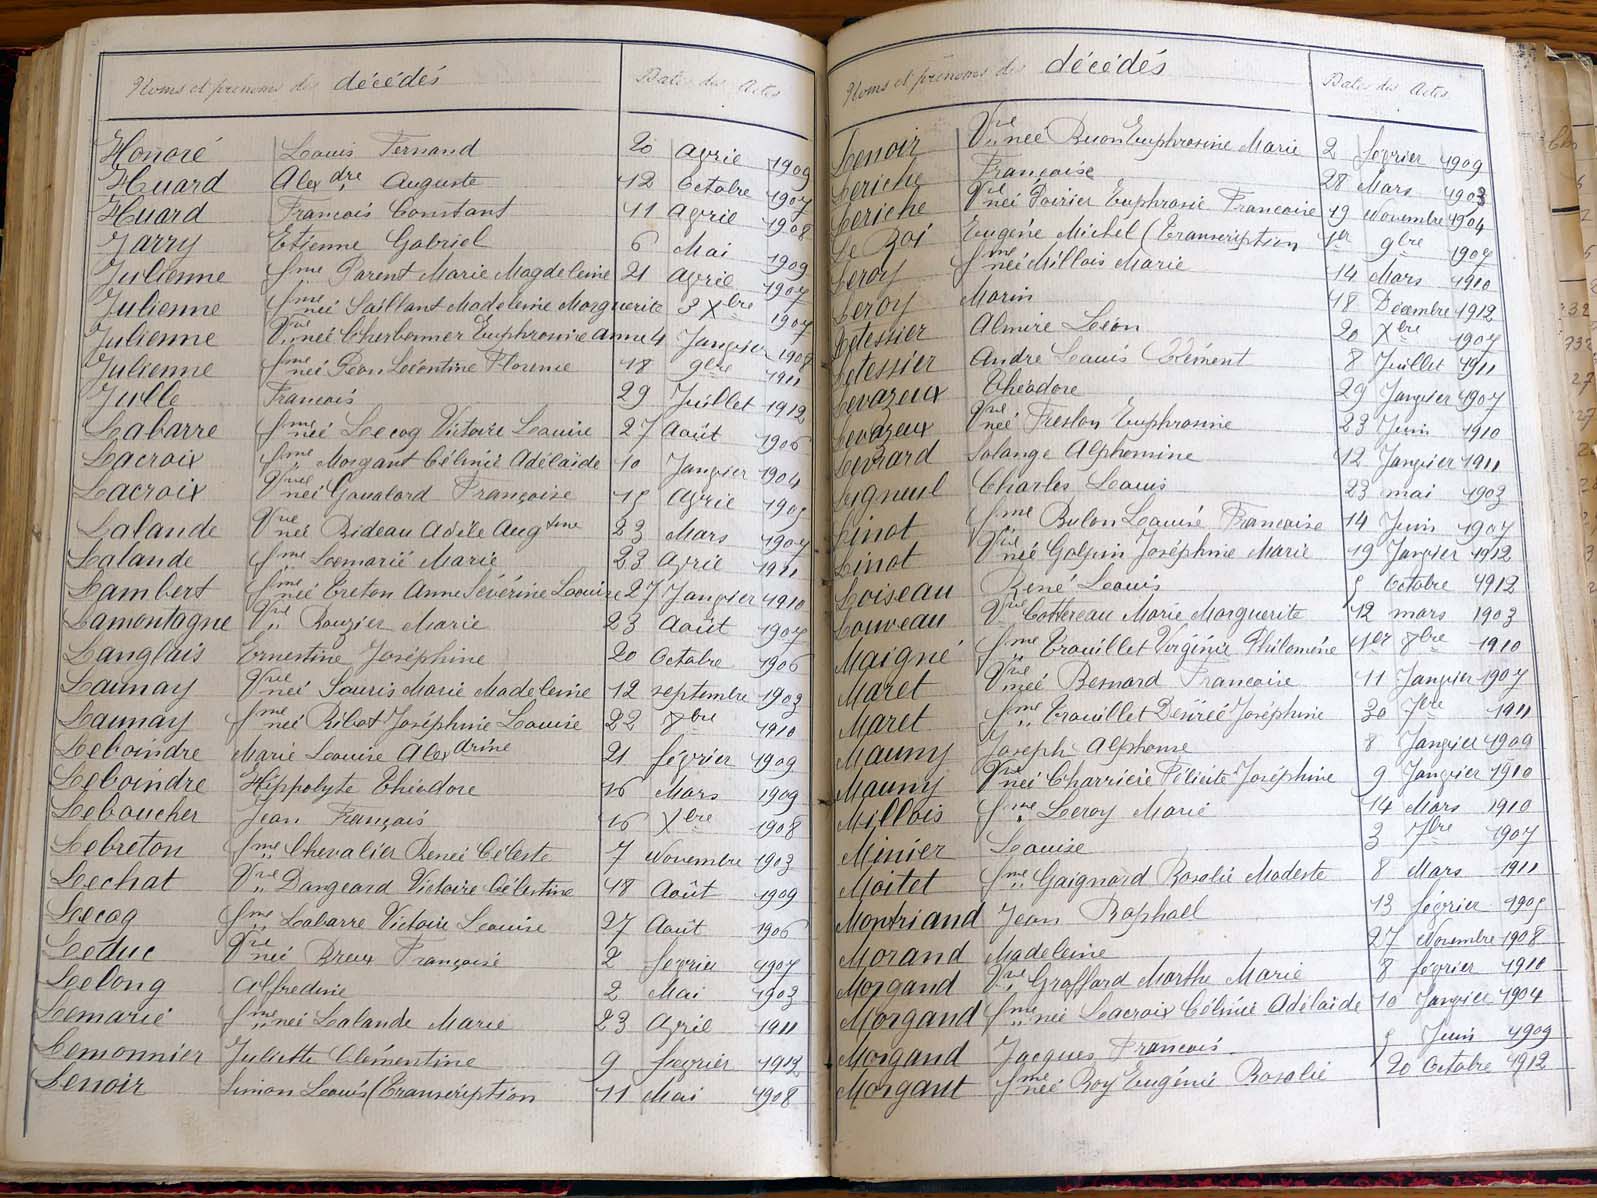 Noms et prénoms des décédés Dates des Actes
Honoré Louis Fernand 20 Avril 1909
Huard Alexdre Auguste 12 Octobre 1907
Huard François Constant 11 Avril 1908
Jarry Etienne Gabriel 6 Mai 1909
Julienne fme Parent Marie Magdeleine 21 Avril 1907
Julienne fme née Saillant Madeleine Marguerite 3 Xbre 1907
Julienne Vve née Cherbonner Euphrosine Anne 4 Janvier 1908
Julienne fme née Péan Léontine Florence 18 9bre 1911
Julle François 29 Juillet 1912
Labarre fme née Lecoq Victoire Louise 27 Août 1906
Lacroix fme Morgant Célinie Adélaïde 10 Janvier 1904
Lacroix Vve née Goualard Françoise 15 Avril 1905
Lalande Vve née Bideau Adèle Augtine 23 Mars 1907
Lalande fme Lemarié Marie 23 Avril 1911
Lambert fme née Creton Anne Sévérine Louise 27 Janvier 1910
Lamontagne Vve " Rouzier Marie 23 Août 1907
Langlais Ernestine Joséphine 20 Octobre 1906
Launay Vve née Souris Marie Madeleine 12 septembre 1903
Launay fme née Ribot Joséphine Louise 22 8bre 1910
Leboindre Marie Louise Alexdrine 21 février 1909
Leboindre Hippolyte Théodore 16 Mars 1909
Leboucher Jean François 16 Xbre 1908
Lebreton fme " Chevalier Renée Céleste 7 Novembre 1903
Lechat Vve " Dangeard Victoire Célestine 18 Août 1909
Lecoq fme " Labarre Victoire Louise 27 Août 1906
Leduc Vve née Breux Françoise 2 fevrier 1907
Lelong Alfredine 2 Mai 1903
Lemarié fme " née Lalande Marie 23 Avril 1911
Lemonnier Juliette Clémentine 9 fevrier 1912
Lenoir Simon Louis (Transcription 11 Mai 1908
Noms et prénoms des décédés Dates des Actes
Lenoir Vve née Buon Euphrosine Marie 2 février 1909
Leriche Françoise 28 Mars 1903
Leriche Vve née Poirier Euphrasie Françoise 19 Novembre 1904
Le Roi Eugène Michel (Transcription 1er 9bre 1907
Leroy fme née Millois Marie 14 Mars 1910
Leroy Marin 18 Décembre 1912
Letessier Almire Léon 20 Xbre 1907
Letessier André Louis Clément 8 Juillet 1911
Levazeux Théodore 29 Janvier 1907
Levazeux Vve née Freslon Euphrosine 23 Juin 1910
Levrard Solange Alphonsine 12 Janvier 1911
Ligneul Charles Louis 23 mai 1903
Linot fme Bulon Louise Françoise 14 Juin 1907
Linot Vve née Golpin Joséphine Marie 19 Janvier 1912
Loiseau René Louis 5 Octobre 1912
Louveau Vve Cottereau Marie Marguerite 12 mars 1903
Maigné fme " Trouillet Virginie Philomène 1er 8bre 1910
Maret Vve née Besnard Françoise 11 Janvier 1907
Maret fme " Trouillet Desirée Joséphine 30 7bre 1911
Mauny Joseph Alphonse 8 Janvier 1909
Mauny Vve née Charricie Félicité Joséphine 9 Janvier 1910
Millois fme " Leroy Marie 14 Mars 1910
Minier Louise 3 7bre 1907
Moitet fme " Gaignard Rosalie Modeste 8 Mars 1911
Montriand Jean Raphaël 13 février 1905
Morand Madeleine 27 Novembre 1908
Morgand Vve " Graffard Marthe Marie 8 février 1910
Morgand fme " née Lacroix Célinie Adélaïde 10 Janvier 1904
Morgand Jacques François 5 Juin 1909
Morgant fme née Roy Eugénie Rosalie 20 Octobre 1912